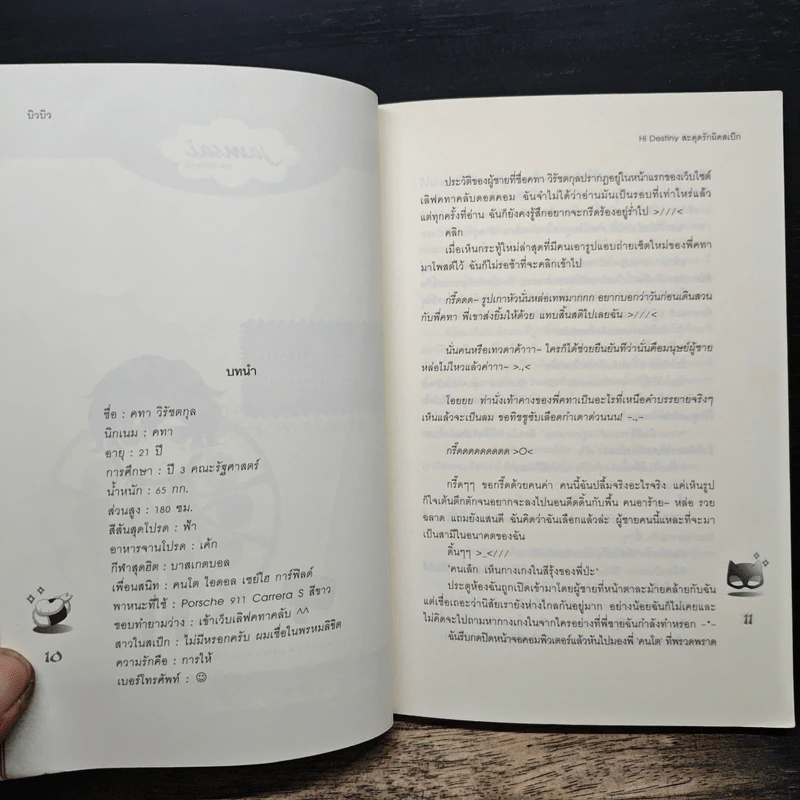 บิวบิว
บทนำ
ชื่อ : คทา วิรัชตกุล
นิกเนม : คทา
อายุ : 21 ปี
การศึกษา : ปี 3 คณะรัฐศาสตร์
น้ำหนัก : 65 กก.
ส่วนสูง : 180 ซม.
สีสันสุดโปรด : ฟ้า
อาหารจานโปรด : เค้ก
กีฬาสุดฮิต : บาสเกตบอล
เพื่อนสนิท : คนโต ไอดอล เซย์โฮ การ์ฟิลด์
พาหนะที่ใช้ : Porsche 911 Carrera S สีขาว
ชอบทำยามว่าง : เข้าเว็บเลิฟคทาคลับ ^^
สาวในสเป็ก : ไม่มีหรอกครับ ผมเชื่อในพรหมลิขิต
ความรักคือ : การให้
เบอร์โทรศัพท์ : ☺
10
Hi Destiny สะดุดรักผิดสเป๊ก
ประวัติของผู้ชายที่ชื่อคทา วิรัชตกุลปรากฏอยู่ในหน้าแรกของเว็บไซต์
เลิฟคทาคลับดอตคอม ฉันจำไม่ได้ว่าอ่านมันเป็นรอบที่เท่าไหร่แล้ว
แต่ทุกครั้งที่อ่าน ฉันก็ยังคงรู้สึกอยากจะกรีดร้องอยู่ร่ำไป >///<
คลิก
เมื่อเห็นกระทู้ใหม่ล่าสุดที่มีคนเอารูปแอบถ่ายเซ็ตใหม่ของพี่คทา
มาโพสต์ไว้ ฉันก็ไม่รอช้าที่จะคลิกเข้าไป
กรี๊ดดด~ รูปเกาหัวนั่นหล่อเทพมากกก อยากบอกว่าวันก่อนเดินสวน
กับพี่คทา พี่เขาส่งยิ้มให้ด้วย แทบสิ้นสติไปเลยฉัน >///<
นั่นคนหรือเทวดาค้าาา~ ใครก็ได้ช่วยยืนยันทีว่านั่นคือมนุษย์ผู้ชาย
หล่อไม่ไหวแล้วค่าาา~ >.,<
โอยยย ท่านั่งเท้าคางของพี่คทาเป็นอะไรที่เหนือคำบรรยายจริงๆ
เห็นแล้วจะเป็นลม ขอทิชชูซับเลือดกำเดาด่วนนน! -.,-
กรี๊ดดดดดดดดด >O<
กรี๊ดๆๆ ขอกรี๊ดด้วยคนค่า คนนี้ฉันปลื้มจริงอะไรจริง แค่เห็นรูป
ก็ใจเต้นตึกตักจนอยากจะลงไปนอนดีดดิ้นกับพื้น คนอาร้าย~ หล่อ รวย
ฉลาด แถมยังแสนดี ฉันคิดว่าฉันเลือกแล้วล่ะ ผู้ชายคนนี้แหละที่จะมา
เป็นสามีในอนาคตของฉัน
ดิ้นๆๆ >_<///
'คนเล็ก เห็นกางเกงในสีรุ้งของพี่ปะ'
ประตูห้องฉันถูกเปิดเข้ามาโดยผู้ชายที่หน้าตาละม้ายคล้ายกับฉัน
แต่เชื่อเถอะว่านิสัยเรายังห่างไกลกันอยู่มาก อย่างน้อยฉันก็ไม่เคยและ
ไม่คิดจะไปถามหากางเกงในจากใครอย่างที่พี่ชายฉันกำลังทำหรอก -*-
ฉันรีบกดปิดหน้าจอคอมพิวเตอร์แล้วหันไปมองพี่ 'คนโต' ที่พรวดพราด
11